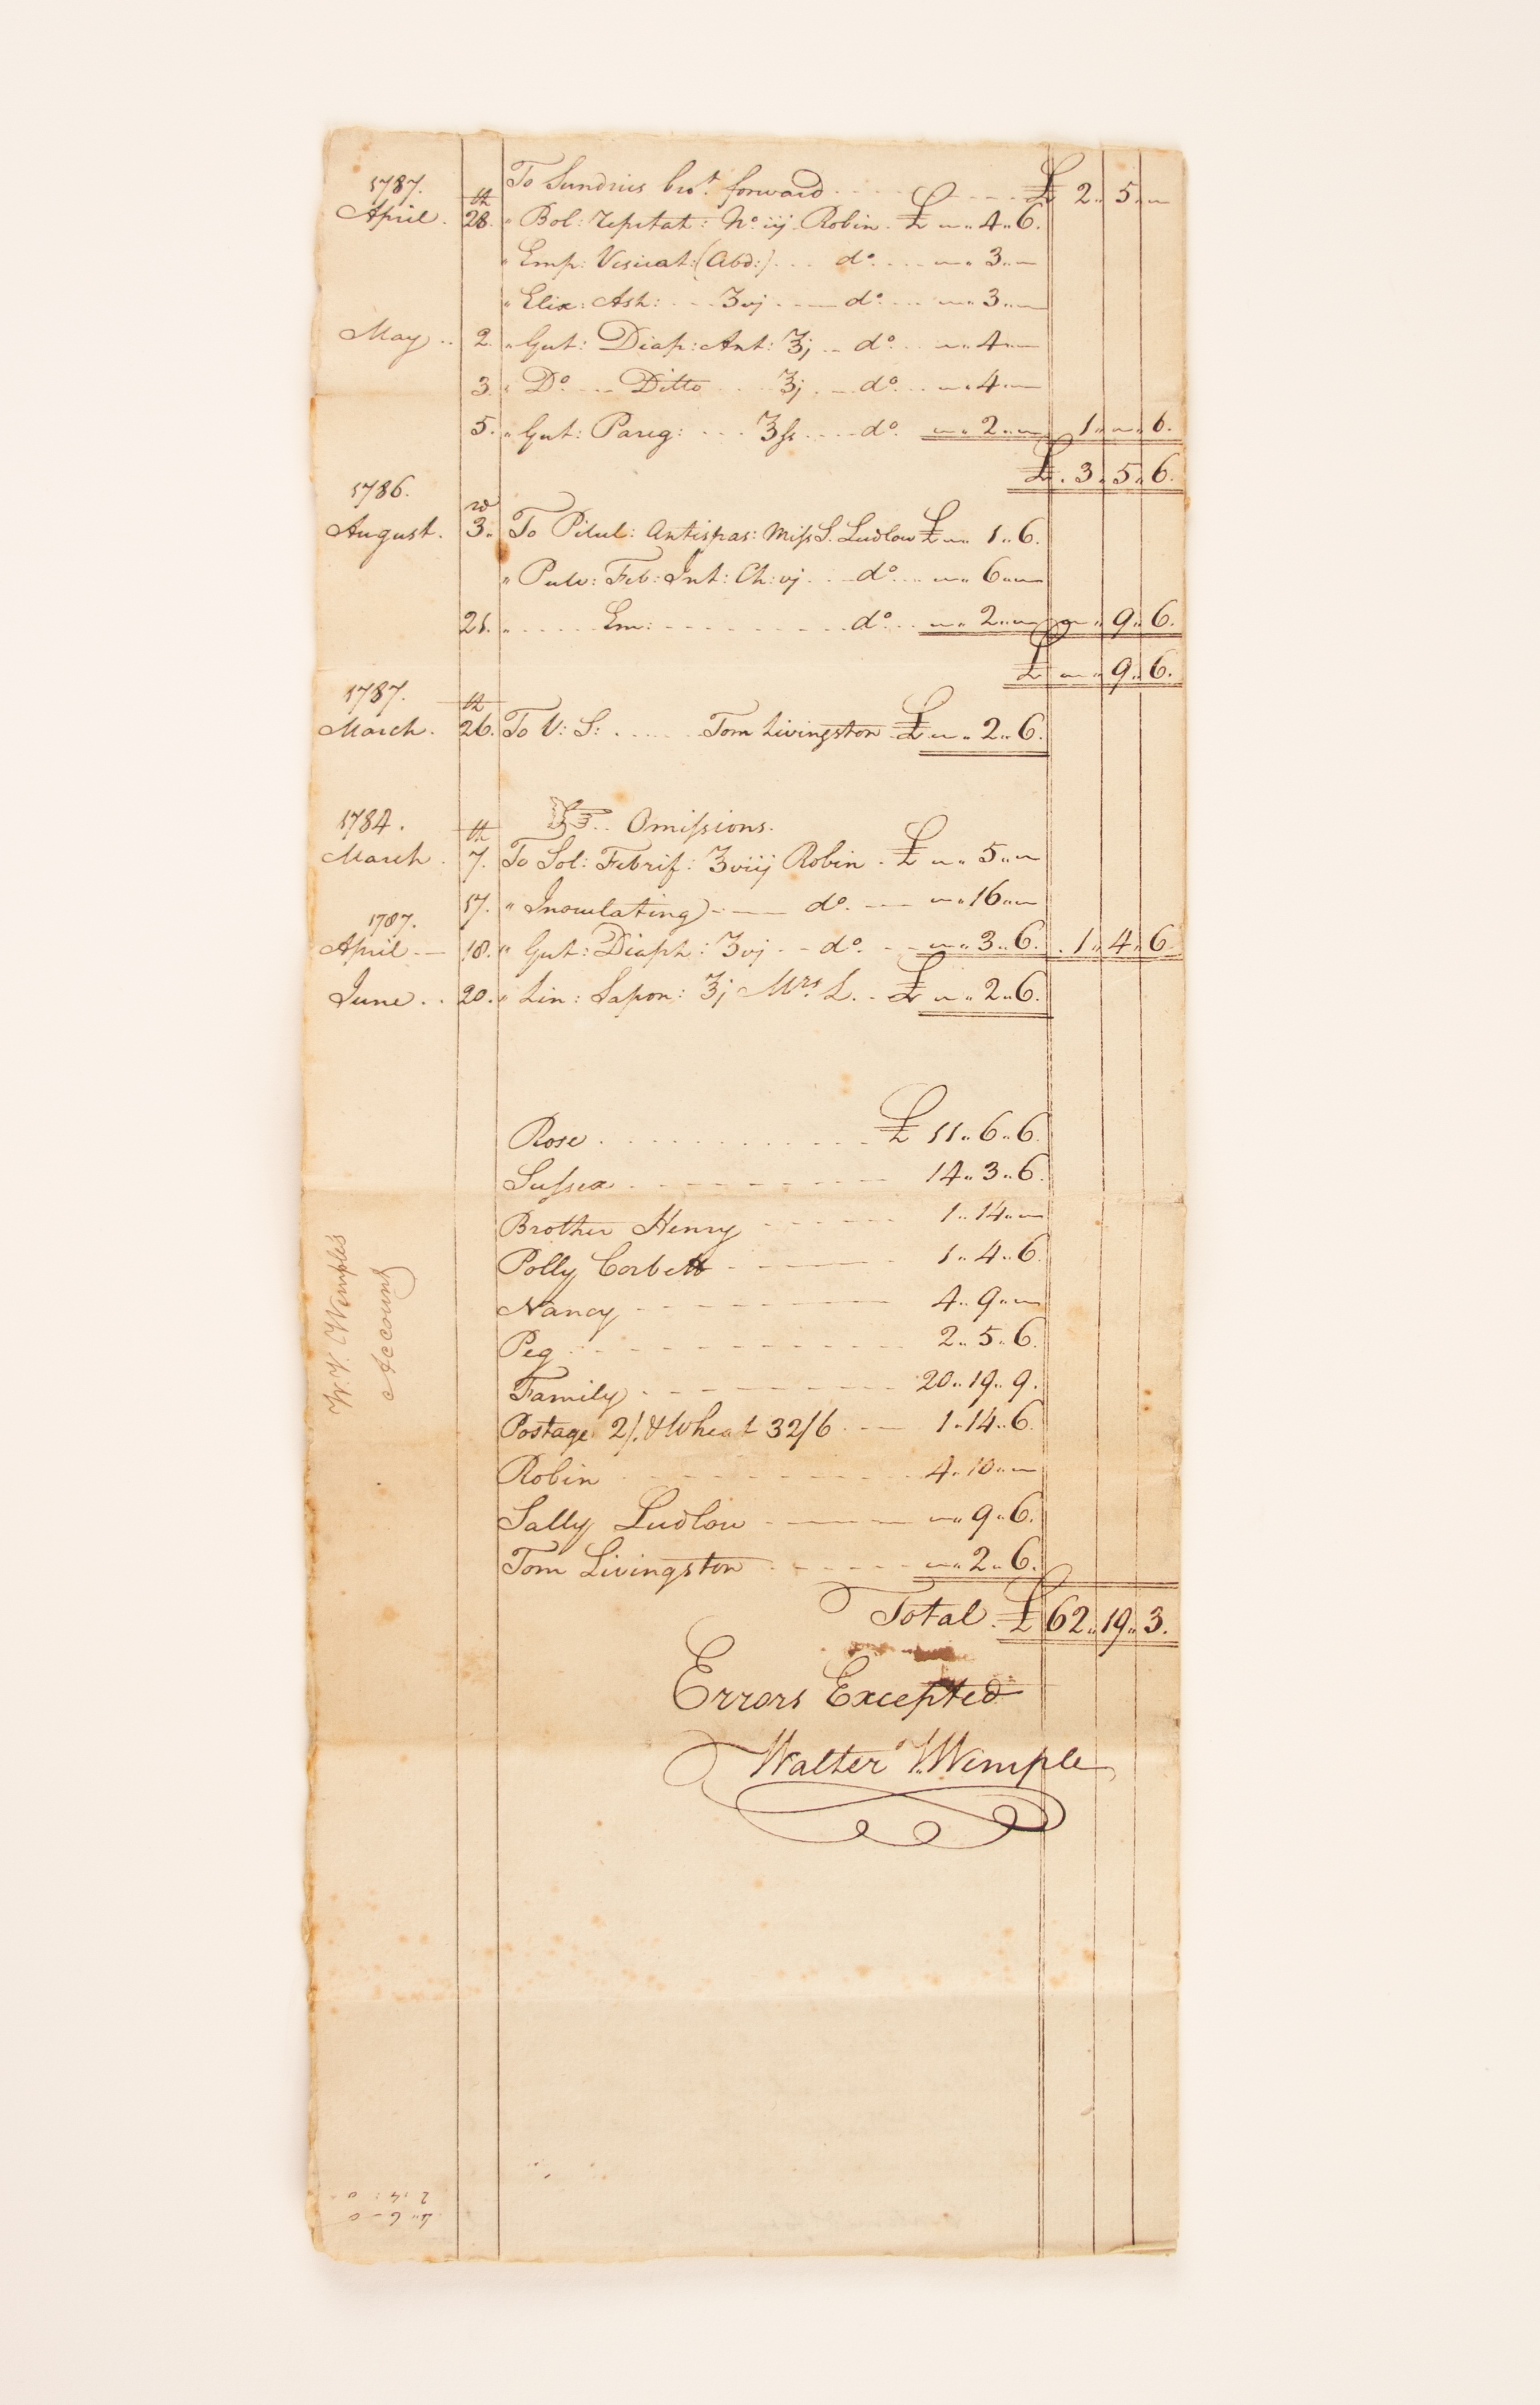 1787. To Sundries bro.t forward £ 2.. 5.. ~
April. 28.th " Bol: Repitat: No. iij Robin. £ ~.. 4.. 6.
" Emp: Vesicat: (Abd:) do. ~.. 3.. ~
" Elix: Ash: ʒvj do. ~.. 3.. ~
May .. 2. " Gut: Diap: Ant: ℥j do. ~.. 4.. ~
3. " Do. Ditto ℥j do. ~.. 4.. ~
5. " Gut: Pareg: ℥ſs do. ~.. 2.. ~ 1.. ~.. 6.
£. 3.. 5.. 6.
1786.
August. 3.rd To Pilul: Antispas: Miſs S. Ludlow £ ~.. 1.. 6.
" Pulv: Feb: Int: Ch: vj do. ~.. 6.. ~
21. " Em: do. ~.. 2.. ~ ~.. 9.. 6.
£ ~.. 9.. 6.
1787.
March. 26.th To V: S: Tom Livingston £ ~.. 2.. 6.
1784. ☞ .. Omiſsions.
March. 7.th To Sol: Febrif: ℥viij Robin. £ ~.. 5.. ~
17. " Inoculating do. ~.. 16.. ~
1787.
April 18. " Gut: Diaph: ʒvj do. ~.. 3.. 6. 1.. 4.. 6.
June.. 20. " Lin: Sapon: ℥j Mrs. L. £ ~.. 2.. 6.
Rose £ 11.. 6.. 6.
Suſsex 14.. 3.. 6.
Brother Henry 1.. 14.. ~
Polly Corbett 1.. 4.. 6.
Nancy 4.. 9.. ~
Peg 2.. 5.. 6.
Family 20.. 19.. 9.
Postage 2/. & Wheat 32/6 1.. 14.. 6.
Robin 4.. 10.. ~
Sally Ludlow ~.. 9.. 6.
Tom Livingston ~.. 2.. 6.
Total. £ 62.. 19.. 3.
Errors Excepted
Walter V. Wemple
W. V. Wemples
Account
4.. 6 - 0
2.. 4 : 0